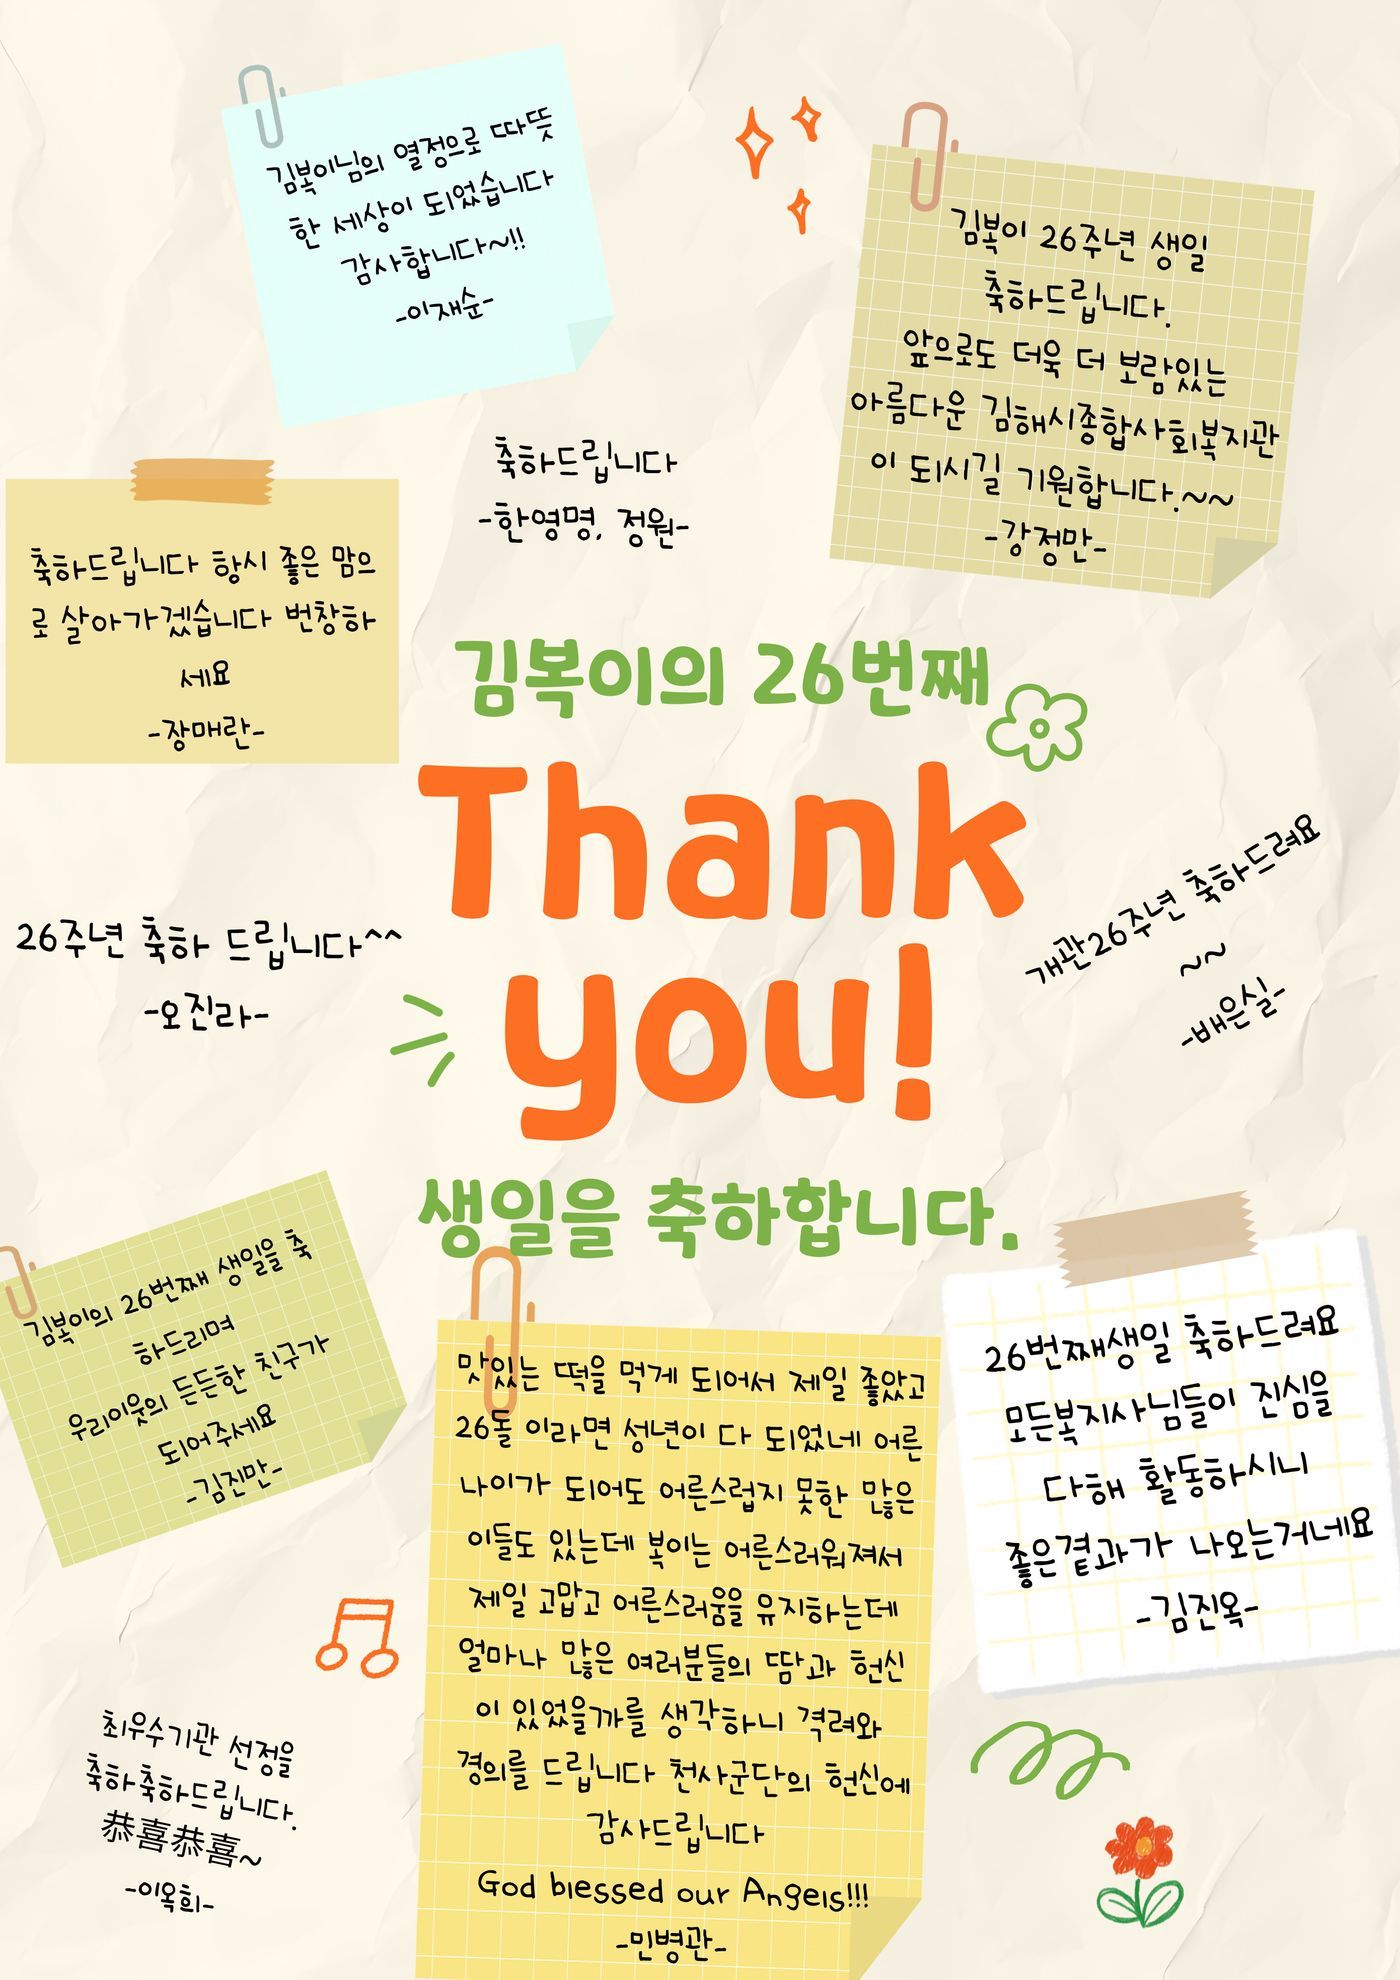 김복이님의 열정으로 따뜻
한 세상이 되었습니다
감사합니다~!!
-이재순-
김복이 26주년 생일
축하드립니다.
앞으로도 더욱 더 보람있는
아름다운 김해시종합사회복지관
이 되시길 기원합니다.~~
-강정만-
축하드립니다
-한영명, 정원-
축하드립니다 항시 좋은 맘으
로 살아가겠습니다 번창하
세요
-장매란-
김복이의 26번째
Thank
you!
생일을 축하합니다.
26주년 축하 드립니다^^
-오진라-
개관26주년 축하드려요
~~
-배은실-
김복이의 26번째 생일을 축
하드리며
우리이웃의 든든한 친구가
되어주세요
-김진만-
맛있는 떡을 먹게 되어서 제일 좋았고
26돌 이라면 성년이 다 되었네 어른
나이가 되어도 어른스럽지 못한 많은
이들도 있는데 복이는 어른스러워져서
제일 고맙고 어른스러움을 유지하는데
얼마나 많은 여러분들의 땀과 헌신
이 있었을까를 생각하니 격려와
경의를 드립니다 천사군단의 헌신에
감사드립니다
God blessed our Angels!!!
-민병관-
26번째생일 축하드려요
모든복지사님들이 진심을
다해 활동하시니
좋은곁과가 나오는거네요
-김진옥-
최우수기관 선정을
축하축하드립니다.
恭喜恭喜~
-이옥희-